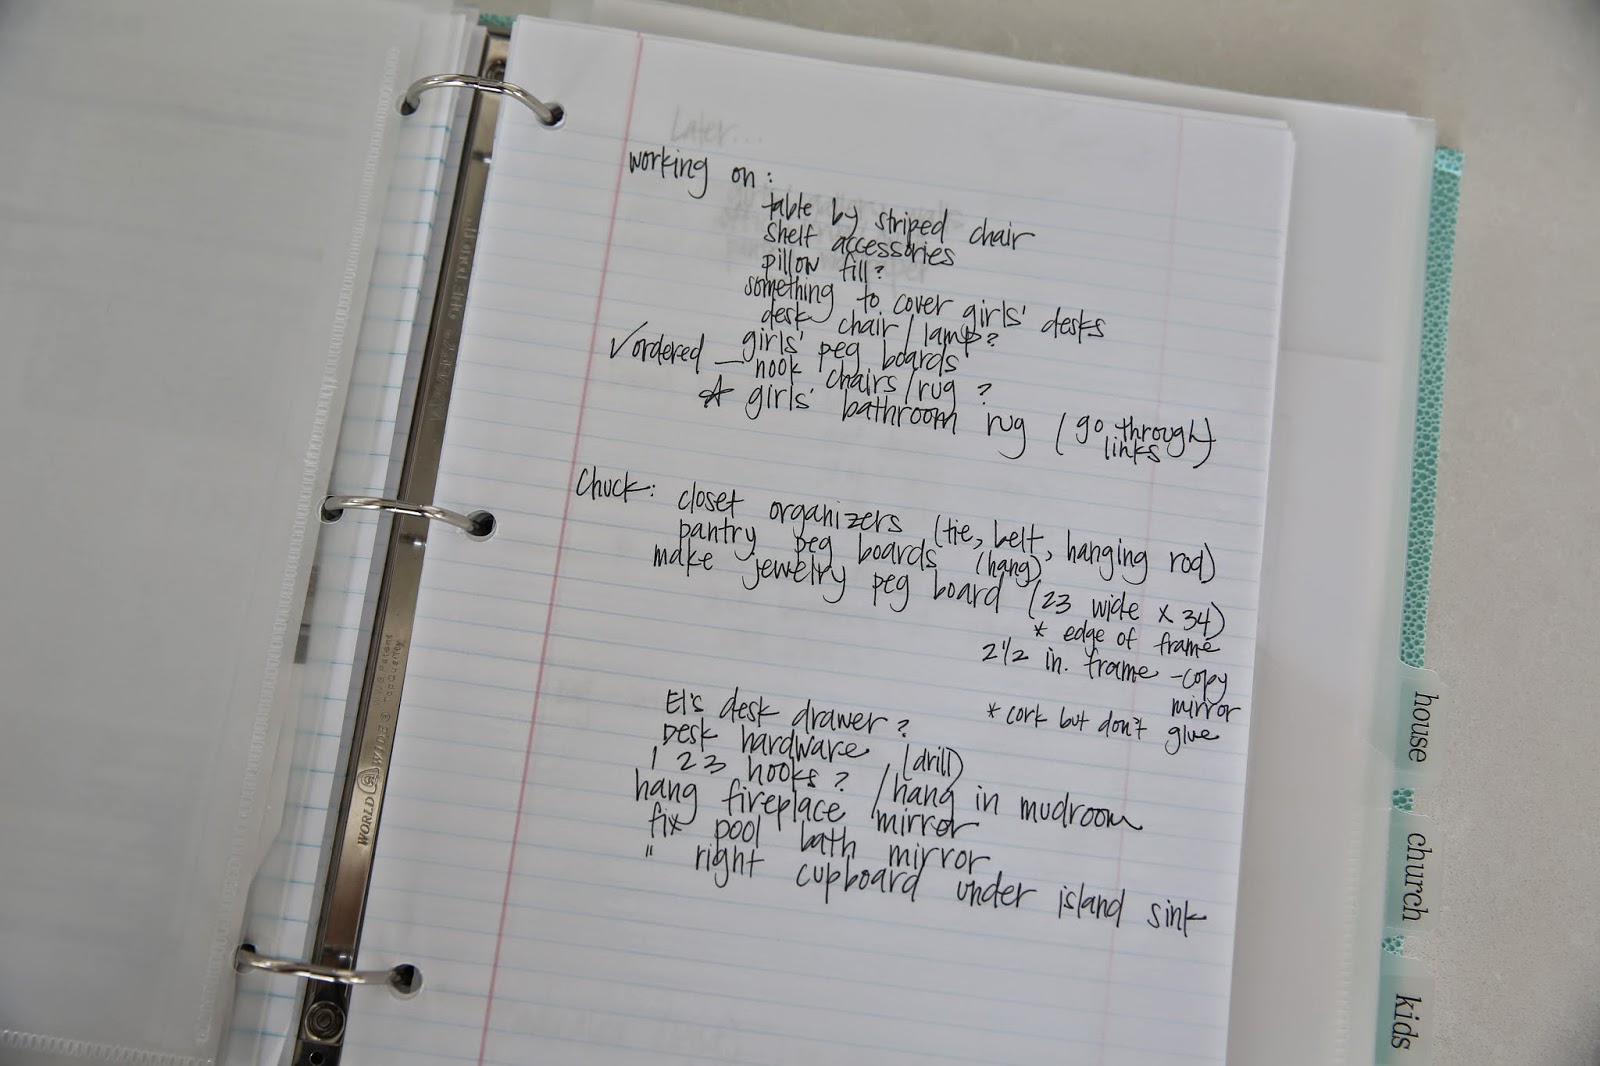 Later...
working on:
table by striped chair
shelf accessories
pillow fill?
something to cover girls' desks
desk chair/lamp?
girls' peg boards
✓ordered — nook chairs/rug?
☆ girls' bathroom rug (go through links)
Chuck: closet organizers (tie, belt, hanging rod)
pantry peg boards (hang)
make jewelry peg board (23 wide x 34)
* edge of frame
2 1/2 in. frame - copy mirror
* cork but don't glue
El's desk drawer?
Desk hardware (drill)
1 2 3 hooks? /hang in mudroom
hang fireplace mirror
fix pool bath mirror
" right cupboard under island sink
WORLD WIDE
house
church
kids